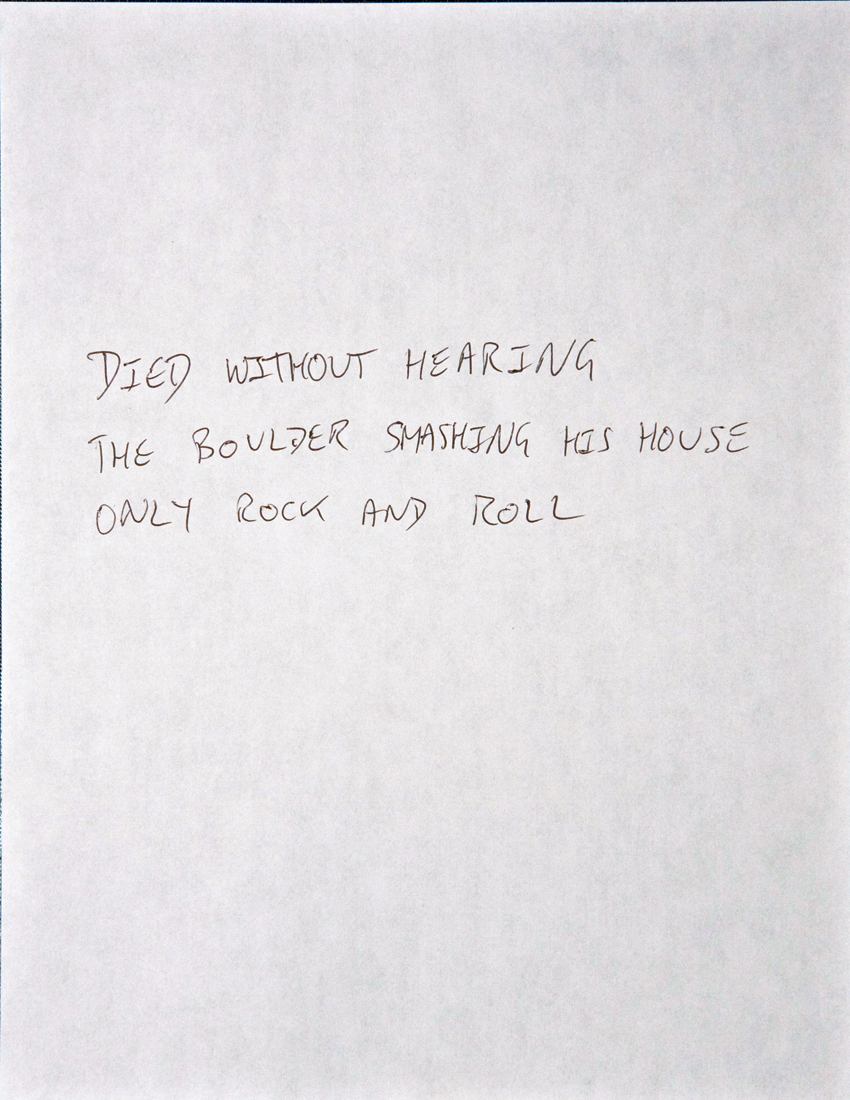 DIED WITHOUT HEARING
THE BOULDER SMASHING HIS HOUSE
ONLY ROCK AND ROLL